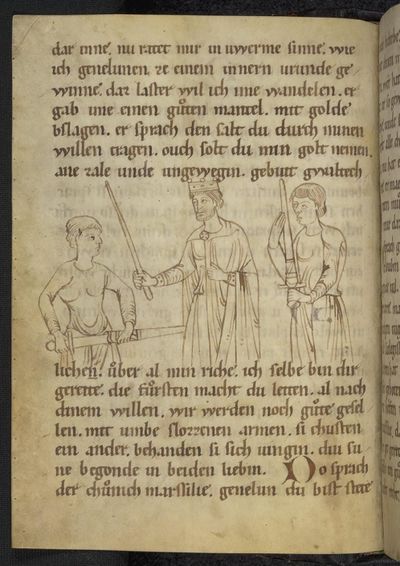 dar inne. nu ratet mir in uwerme sinne. wie
ich genelunen. ze einem innern urunde ge
winne. daz laster wil ich ime wandelen. er
gab ime einen guͦten mantel. mit golde
bslagen. er sprach den salt du durch minen
willen tragen. ouch solt du min golt nemen.
ane zale unde ungewegin. gebiut gwaltech
lichen. uͤber al min riche. ich selbe bin dir
gereite. die fuͤrsten macht du leiten. al nach
dinem willen. wir werden noch guͦte gesel
len. mit umbe slozzenen armen. si chusten
ein ander. behanden si sich uingin. diu su
ne begonde in beiden liebin. Do sprach
der chuͦnich marssilie. genelun du bist stete